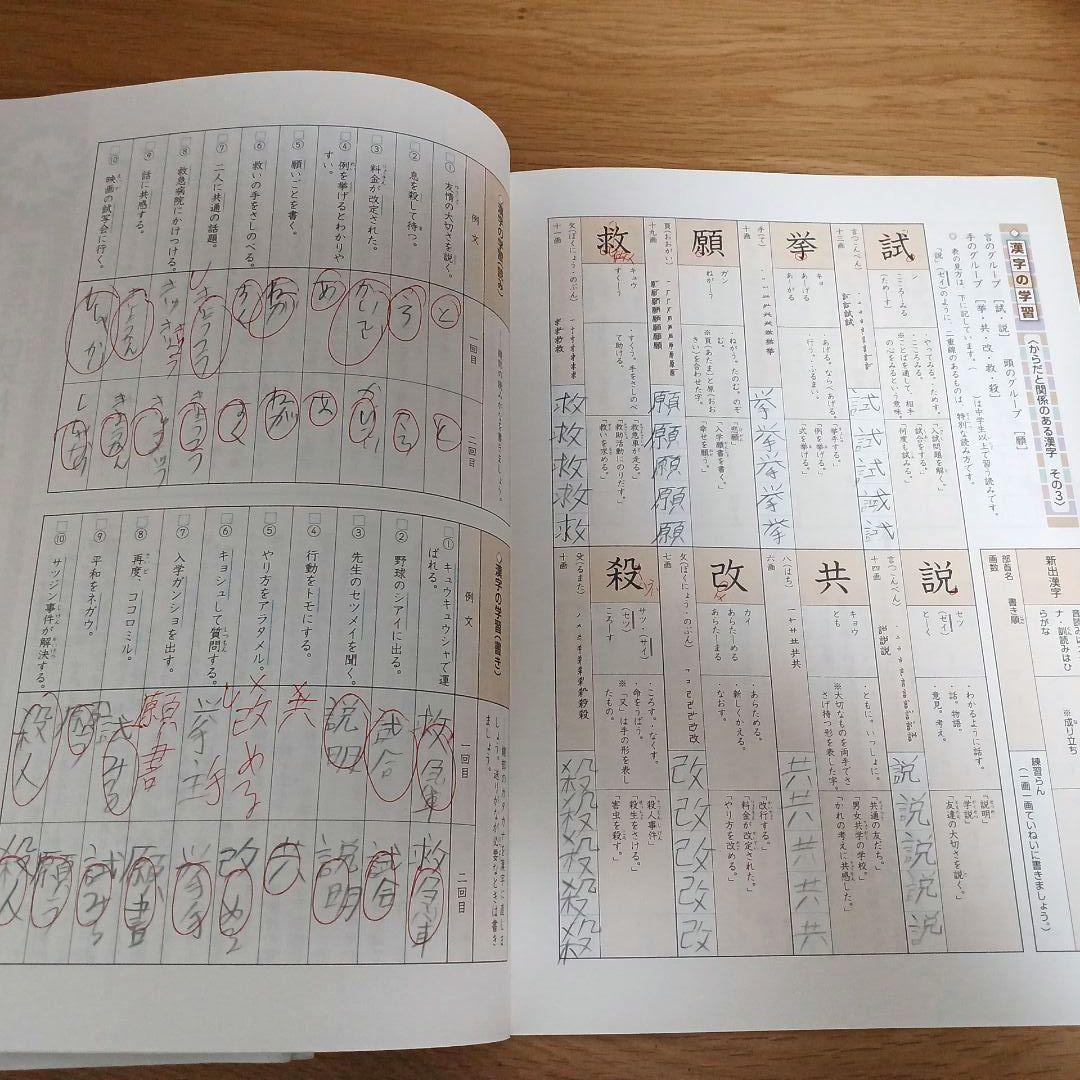 ◇漢字の学習〈からだと関係のある漢字 その3〉
言のグループ［試・説］ 頭のグループ［願］
手のグループ［挙・共・改・救・殺］
◎ 表の見方は、下に記しています。( )は中学生以上で習う読みです。
「説」(セイ)のように、二重線のあるものは、特別な読み方です。
新出漢字
部首名
画数
書き順
※成り立ち
練習らん
(一画一画ていねいに書きましょう。)
試
言(ごんべん)
十三画
シ
こころーみる
(ためーす)
・やってみる。ためす。
・こころみる。
※ことばを通して、相手の心をみるという意味。
「入試問題を解く。」
「試合をする。」
「何度も試みる。」
試試試試
挙
手(て)
十画
キョ
あーげる
あーがる
・あげる。ならべあげる。
・行う。ふるまい。
「挙手する。」
「例を挙げる。」
「式を挙げる。」
挙挙挙挙挙
願
頁(おおがい)
十九画
ガン
ねがーう
・ねがう。たのむ。のぞむ。
※頁(あたま)と原(おおきい)を合わせた字。
「悲願」
「入学願書を書く。」
「幸せを願う。」
願願願願願
救
攵(ぼくにょう・のぶん)
十一画
キュウ
すくーう
・すくう。手をさしのべて助ける。
「救急車が走る。」
「救助活動にのりだす。」
「救いを求める。」
救救救救救
説
言(ごんべん)
十四画
セツ
(セイ)
とーく
・わかるように話す。
・話。物語。
・意見。考え。
「説明」
「学説」
「友達の大切さを説く。」
説説説説説
共
八(はち)
六画
キョウ
とも
・ともに。いっしょに。
※大切なものを両手でささげ持つ形を表した字。
「共通の友だち。」
「男女共学の学校。」
「かれの考えに共感した。」
共共共共共
改
攵(ぼくにょう・のぶん)
七画
カイ
あらたーめる
あらたーまる
・あらためる。
・新しくかえる。
・なおす。
「改行する。」
「料金が改定された。」
「やり方を改める。」
改改改改改
殺
殳(るまた)
十画
サツ・(サイ)
(セツ)
ころーす
・ころす。・なくす。
・命をうばう。
※「又」は手の形を表したもの。
「殺人事件」
「殺生をさける。」
「害虫を殺す。」
殺殺殺殺殺
◇漢字の学習(読み)
例文
一回目
二回目
① 友情の大切さを説く。 と と
② 息を殺して待つ。 ころ
③ 料金が改定された。 かいてい
④ 例を挙げるとわかりやすい。 あ あ
⑤ 願いごとを書く。 ねが ねが
⑥ 救いの手をさしのべる。
⑦ 二人に共通の話題。
⑧ 救急病院にかけつける。
⑨ 話に共感する。
⑩ 映画の試写会に行く。
◇漢字の学習(書き)
例文
一回目
二回目
① キュウキュウシャで運ばれる。 救急車 救急車
② 野球のシアイに出る。 試合 試合
③ 先生のセツメイを聞く。 説明 説明
④ 行動をトモにする。 共 共
⑤ やり方をアラタメル。 改める 改める
⑥ キョシュして質問する。 挙手 挙手
⑦ 入学ガンショを出す。 願書 願書
⑧ 再度、ココロミル。 試みる 試みる
⑨ 平和をネガウ。 願う 願う
⑩ サツジン事件が解決する。 殺人 殺人